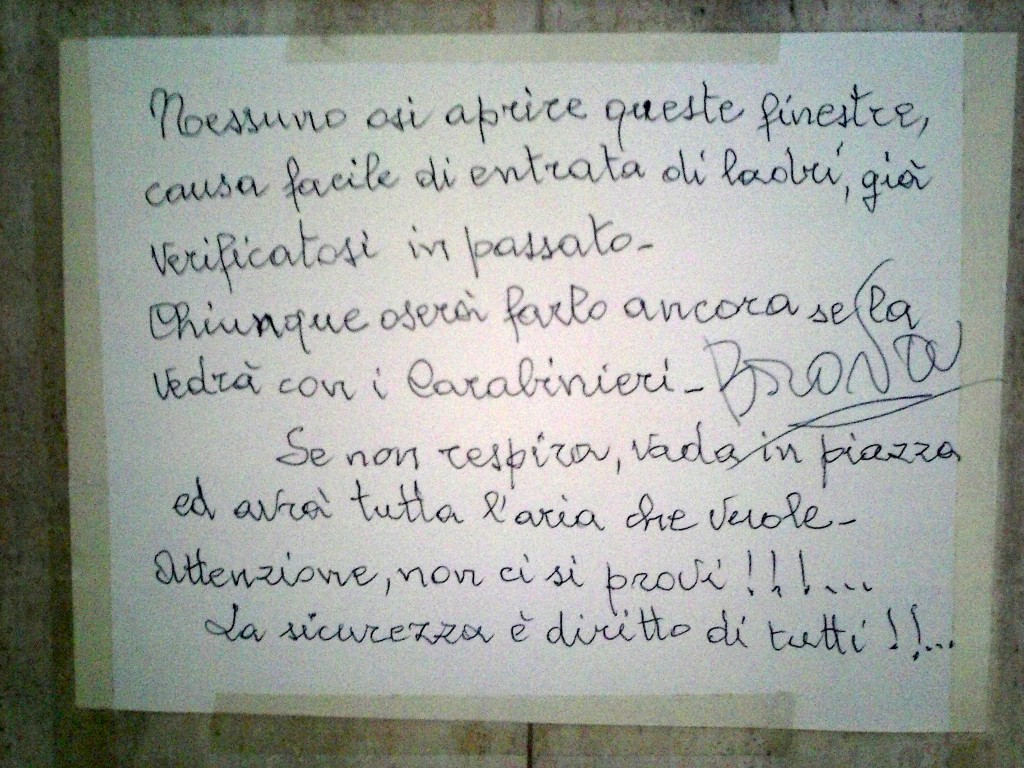 Nessuno osi aprire queste finestre,
causa facile di entrata di ladri, già
verificatosi in passato-
Chiunque oserà farlo ancora se la
vedrà con i Carabinieri- Brava
Se non respira, vada in piazza
ed avrà tutta l'aria che vuole-
Attenzione, non ci si provi!!!...
La sicurezza è diritto di tutti!!...